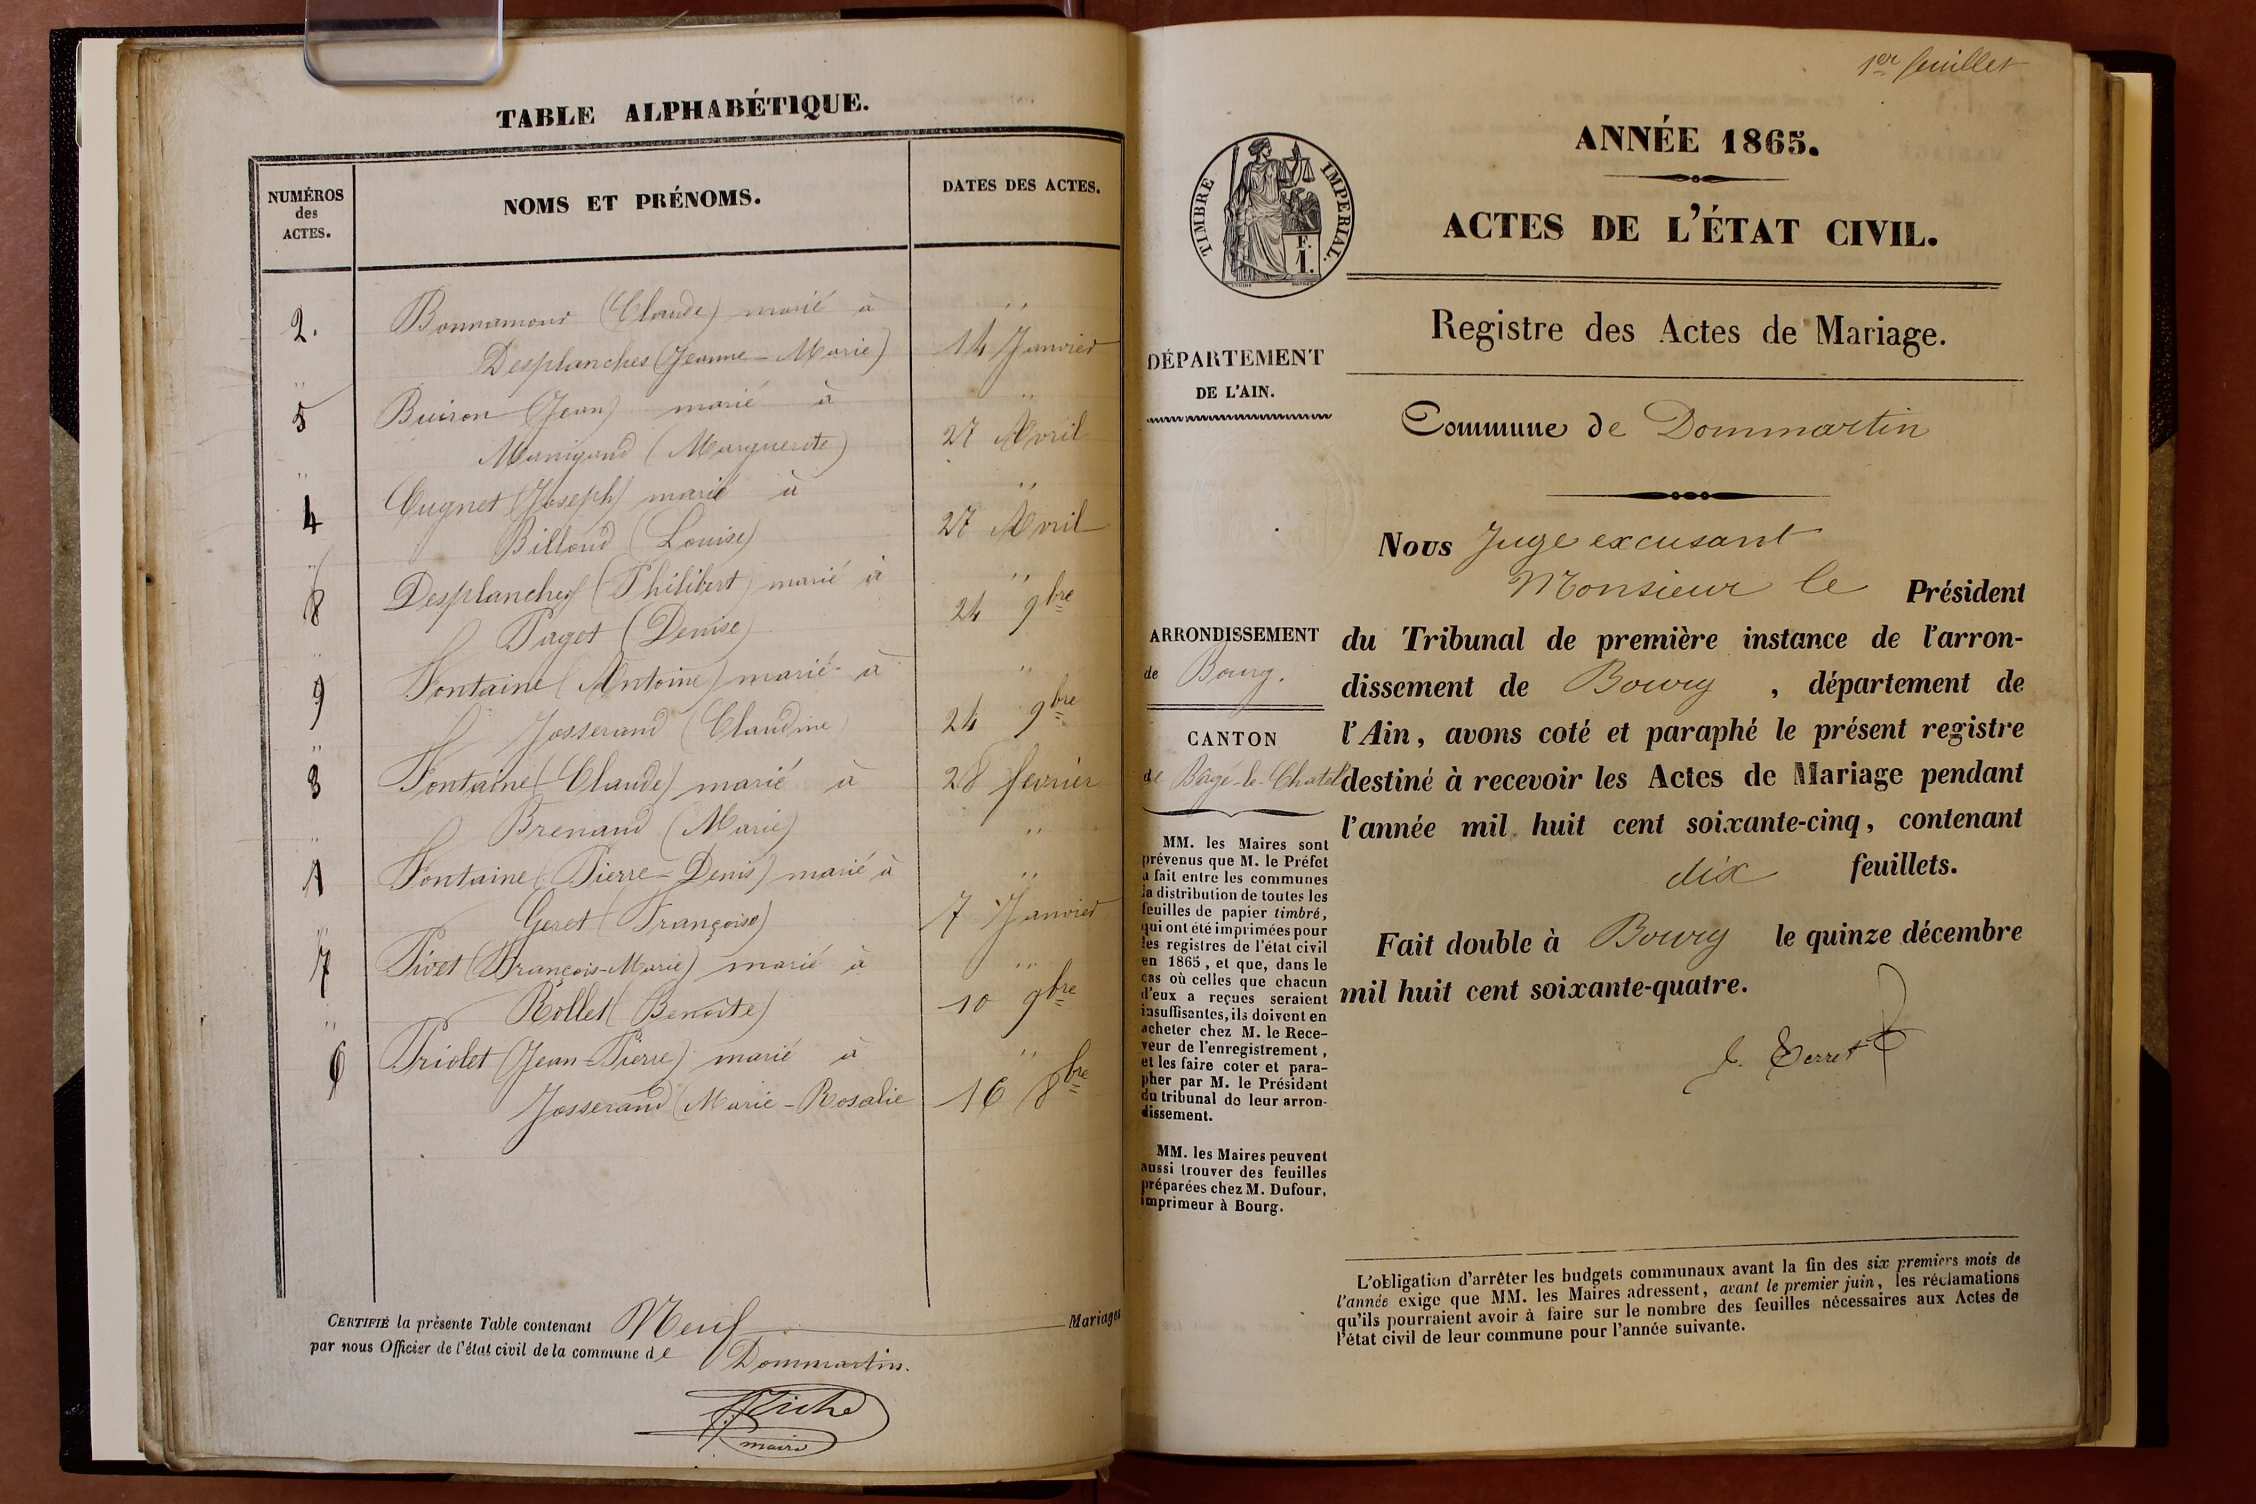 TABLE ALPHABÉTIQUE.
NUMÉROS
des
ACTES.
NOMS ET PRÉNOMS.
DATES DES ACTES.
2. Bonnamour (Claude) marié à
Desplanches (Jeanne-Marie) 14 Janvier
5 Buiron (Jean) marié à
Manigand (Marguerite) 27 Avril
4 Cugnet (Joseph) marié à
Billoud (Louise) 27 Avril
8 Desplanches (Philibert) marié à
Pagot (Denise) 24 9bre
9 Fontaine (Antoine) marié à
Josserand (Claudine) 24 9bre
3 Fontaine (Claude) marié à 28 fevrier
Brenaud (Marie)
1 Fontaine (Pierre-Denis) marié à
Geret (Françoise) 7 Janvier
7 Pivet (François-Marie) marié à
Rollet (Benoite) 10 9bre
6 Priolet (Jean-Pierre) marié à
Josserand (Marie-Rosalie 16 8bre
CERTIFIÉ la présente Table contenant Neuf Mariages
par nous Officier de l'état civil de la commune de Dommartin.
maire
1er feuillet
TIMBRE IMPERIAL.
F.
1.
ANNÉE 1865.
ACTES DE L'ÉTAT CIVIL.
Registre des Actes de Mariage.
DÉPARTEMENT
DE L'AIN.
Commune de Dommartin
Nous Juge excusant
Monsieur le Président
du Tribunal de première instance de l'arron-
dissement de Bourg, département de
l'Ain, avons coté et paraphé le présent registre
destiné à recevoir les Actes de Mariage pendant
l'année mil huit cent soixante-cinq, contenant
dix feuillets.
Fait double à Bourg le quinze décembre
mil huit cent soixante-quatre.
ARRONDISSEMENT
de Bourg.
CANTON
de Bagé-le-Chatel
MM. les Maires sont
prévenus que M. le Préfet
a fait entre les communes
la distribution de toutes les
feuilles de papier timbré,
qui ont été imprimées pour
les registres de l'état civil
en 1865, et que, dans le
cas où celles que chacun
d'eux a reçues seraient
insuffisantes, ils doivent en
acheter chez M. le Rece-
veur de l'enregistrement,
et les faire coter et para-
pher par M. le Président
du tribunal de leur arron-
dissement.
MM. les Maires peuvent
aussi trouver des feuilles
préparées chez M. Dufour,
imprimeur à Bourg.
L'obligation d'arrêter les budgets communaux avant la fin des six premiers mois de
l'année exige que MM. les Maires adressent, avant le premier juin, les réclamations
qu'ils pourraient avoir à faire sur le nombre des feuilles nécessaires aux Actes de
l'état civil de leur commune pour l'année suivante.